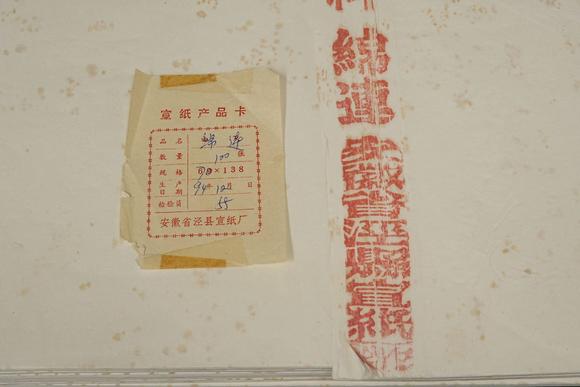 宣纸产品卡
品名 绵连
数量 100张
规格 69×138
生产日期 94年12月 日
检验员 55
安徽省泾县宣纸厂
綿連
安徽省涇縣宣紙